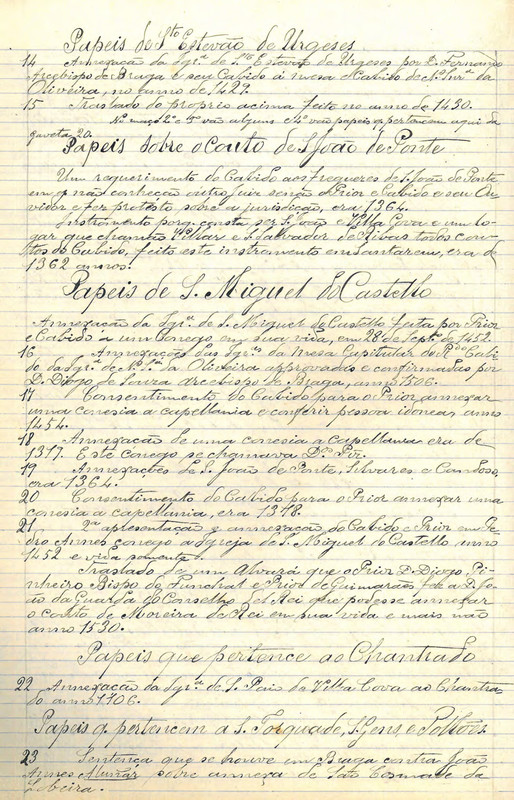 Papeis de S.to Estevão de Urgeses
14 Annexação da Igr.ª de S.to Estevão de Urgeses por D. Fernando
Arcebispo de Braga e seu Cabido á mesa e Cabido de N. Snr.ª da
Oliveira, no anno de 1429.
15 Traslado do proprio acima feito no anno de 1430.
No maço 2º e 5º vão alguns e 4º vão papeis q. pertencem aqui da
gaveta 20.
Papeis sobre o couto de S. João de Ponte
Um requerimento do Cabido aos freguezes de S. João de Ponte
em q. não conheção outro Juiz senão o Prior e Cabido e seu Ou
vidor e fez protesto sobre a jurisdição, era 1364.
Instrumento porq. consta ser S. João e Villa Cova e um lo-
gar que chamão Villar e S. Salvador de Ribas todos cou-
tos do Cabido, feito este instrumento em Santarem, era de
1362 annos.
Papeis de S. Miguel do Castello
Annexação da Igr.ª de S. Miguel do Castello feita por Prior
e Cabido a um Conego em sua vida, em 28 de Sept.º de 1452.
16 Annexações das Igr.as da Mesa Capitular do R.do Cabi
do da Igr.ª de N. Snr.ª da Oliveira approvadas e confirmadas por
D. Diogo de Souza arcebispo de Braga, anno 1506.
17 Consentimento do Cabido para o Prior annexar
uma conesia a capellania e conferir pessoa idonea anno
1454.
18 Annexação de uma conesia a capellania era de
1317. Este conego se chamava D.os Pir.
19 Annexações de S. João de Ponte, Silvares e Candoso,
era 1364.
20 Consentimento do Cabido para o Prior annexar uma
conesia a capellania, era 1318.
21 apresentação e annexação do Cabido e Prior em Pe-
dro Annes conego a Igreja de S. Miguel do Castello anno
1452 e vida somente.
Traslado de um Alvará que o Prior D. Diogo Pi-
nheiro Bispo do Funchal e Prior de Guimarães fez a D. Jo-
ão da Guarda do Conselho d'el Rei que podesse annexar
o couto de Moreira de Rei em sua vida e mais não
anno 1530.
Papeis que pertence ao Chantrado
22 Annexação da Igr.ª de S. Paio de Villa Cova ao Chantra
do anno 1706.
Papeis q. pertencem a S. Torquade, S. Gens, e
23 Sentença que se houve em Braga contra João
Annes sobre annexa de São Cosmade da
Lobeira.